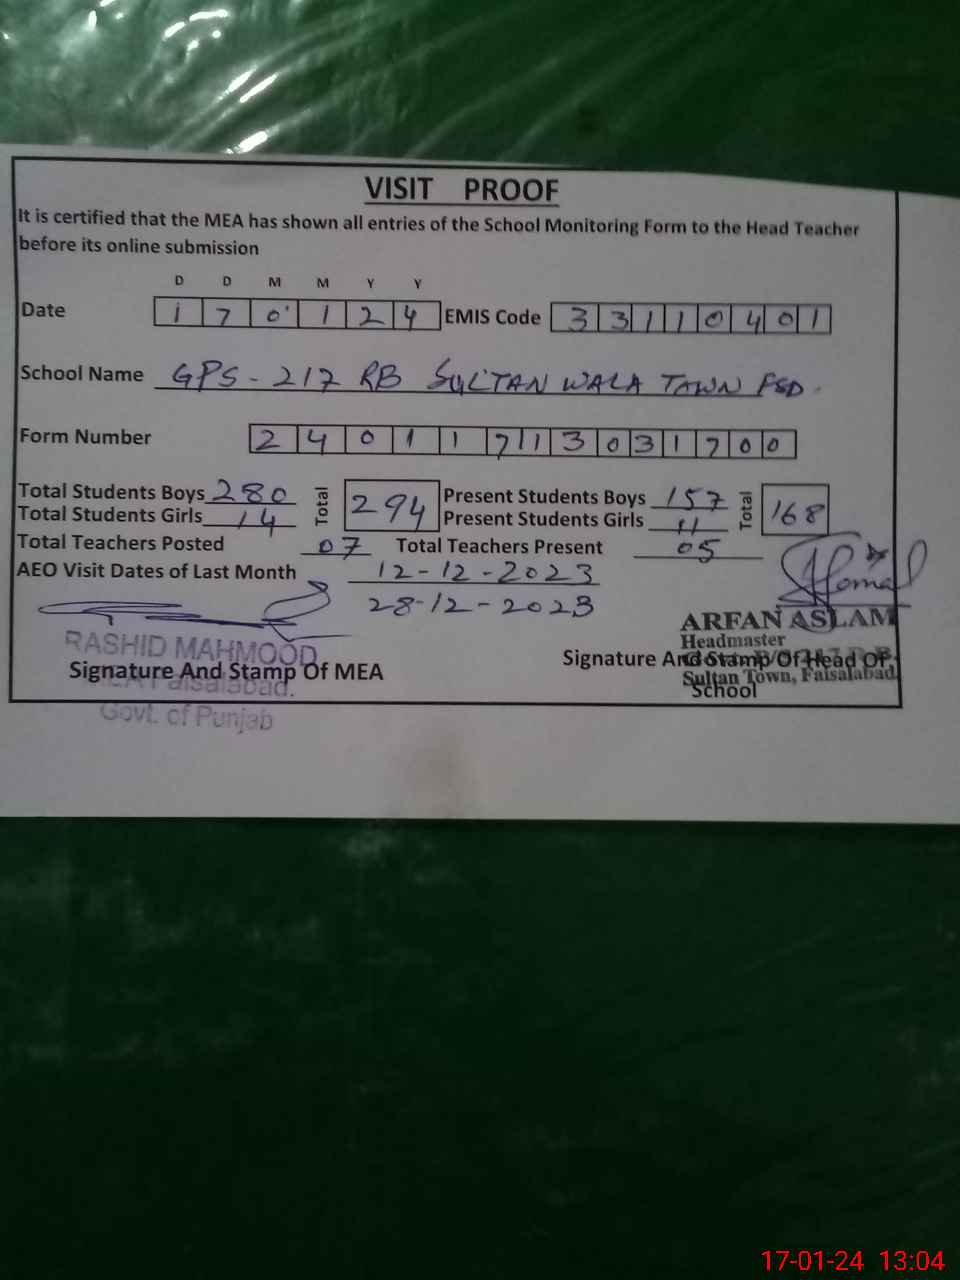 VISIT PROOF
It is certified that the MEA has shown all entries of the School Monitoring Form to the Head Teacher
before its online submission
D D M M Y Y
Date 1 7 0 1 2 4 EMIS Code 3 3 1 1 0 4 0 1
School Name GPS - 217 RB SULTAN WALA TAWN FSD.
Form Number 2 4 0 1 1 7 1 3 0 3 1 7 0 0
Total Students Boys 280 Total 294 Present Students Boys 157 Total 168
Total Students Girls 14 Present Students Girls 11
Total Teachers Posted 07 Total Teachers Present 05
AEO Visit Dates of Last Month 12-12-2023
28-12-2023
RASHID MAHMOOD
Signature And Stamp Of MEA
MEA Faisalabad.
Govt. of Punjab
ARFAN ASLAM
Headmaster
Signature And Stamp Of Head Of
Sultan Town, Faisalabad
School
17-01-24 13:04